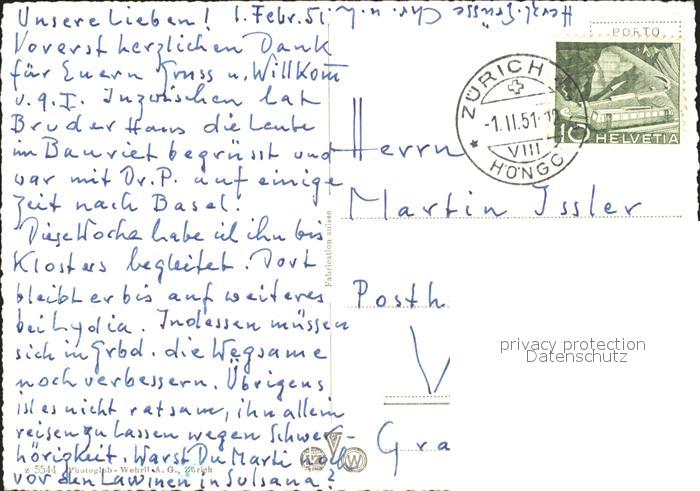 Unsere Lieben! 1. Febr. 51.
Herzl. Grüsse Chr. u. L.
Vorerst herzlichen Dank
für Euern Gruss u. Willkom
u. g. I. Inzwischen hat
Bruder Hans die Leute
im Bauriet begrüsst und
war mit Dr. P. auf einige
Zeit nach Basel.
Diese Woche habe ich ihn bis
Klosters begleitet. Dort
bleibt er bis auf weiteres
bei Lydia. Indessen müssen
sich in Grbd. die Wegsame
noch verbessern. Übrigens
ist es nicht ratsam, ihn allein
reisen zu lassen wegen Schwer-
hörigkeit. Warst Du Marti noch
vor den Lawinen in Sulsana?
z 5544 Photoglob-Wehrli A. G., Zürich
Fabrication suisse
PORTO
ZÜRICH
-1.II.51.-12
VIII
HÖNGG
10 HELVETIA
Herrn
Martin Issler
Posth
V
Gra
privacy protection
Datenschutz